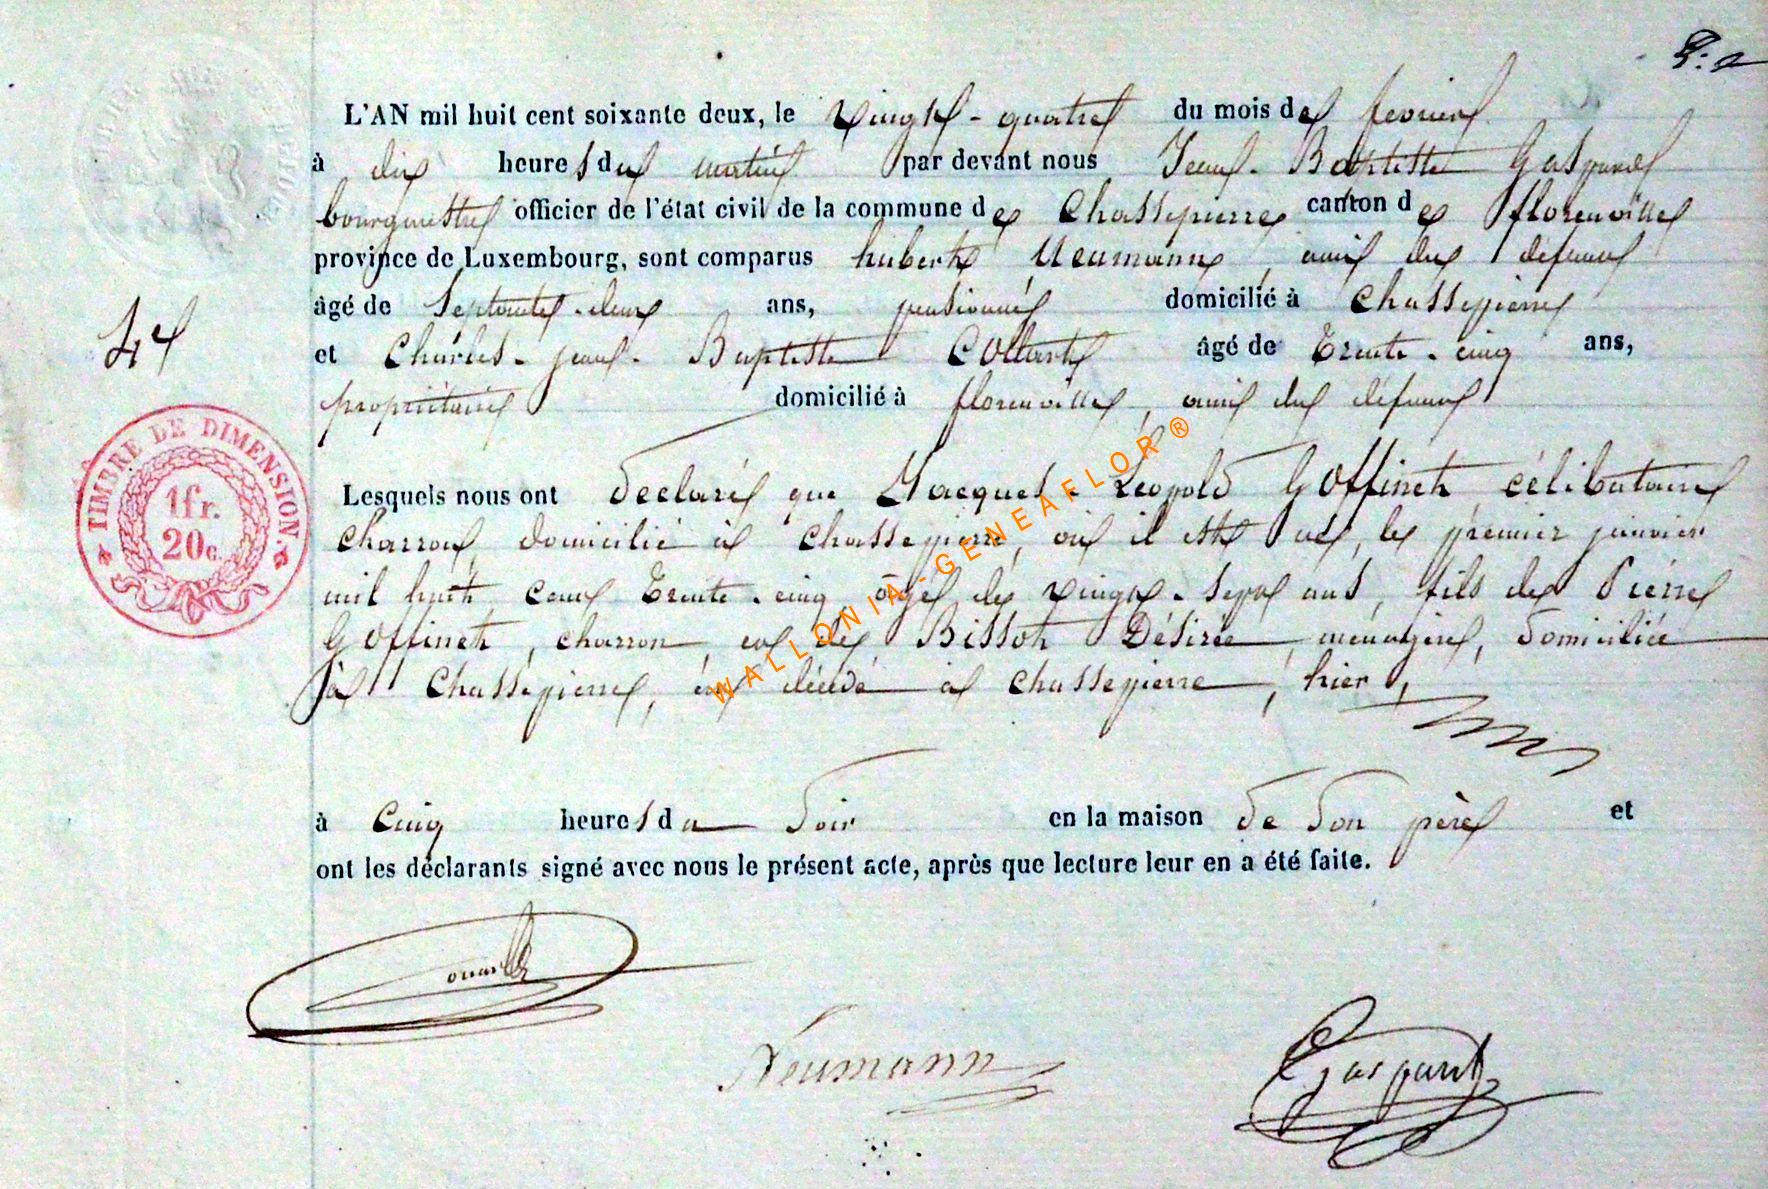 P: 2
L'AN mil huit cent soixante deux, le vingt-quatre du mois de fevrier
à dix heures du matin par devant nous Jean-Baptiste Gaspard
bourgmestre officier de l'état civil de la commune de Chassepierre canton de florenville
province de Luxembourg, sont comparus hubert Neumann, ami du défunt
âgé de Septante-deux ans, pensionné domicilié à Chassepierre
4e
et Charles-jean-Baptiste Collart âgé de Trente-cinq ans,
propriétaire domicilié à florenville, ami du défunt
Lesquels nous ont declaré que Jacques-Léopold Goffinet célibataire
charron domicilié à chassepierre, où il est né, le premier janvier
mil huit cent Trente-cinq âgé de vingt-sept ans, fils de Pierre
Goffinet, charron et de Bisson Désirée, ménagère, domiciliée
à Chassepierre, est décédé à chassepierre, hier,
TIMBRE DE DIMENSION.
1 fr.
20 c.
WALLONIA-GENEAFLOR ®
à Cinq heures du Soir en la maison de son père et
ont les déclarants signé avec nous le présent acte, après que lecture leur en a été faite.
Neumann
Gaspard